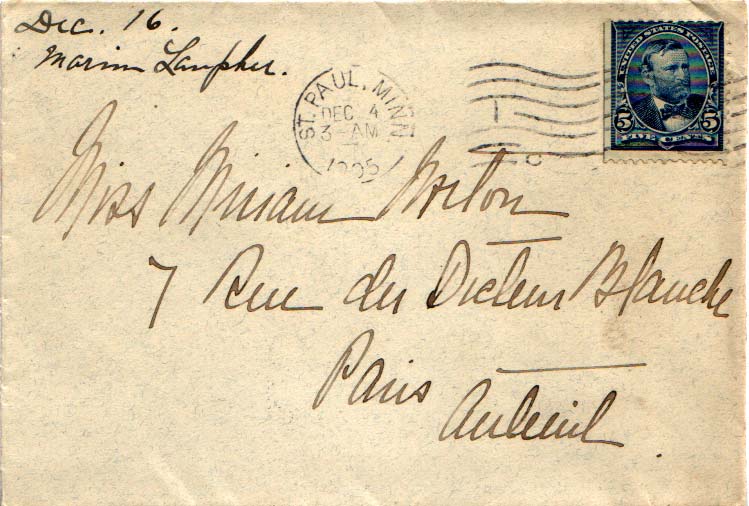 Dec. 16.
Marion Lanpher.
ST. PAUL, MINN
DEC 4
3-AM
UNITED STATES POSTAGE
5 5
Miss Miriam Norton
7 Rue du Docteur Blanche
Paris
Auteuil.